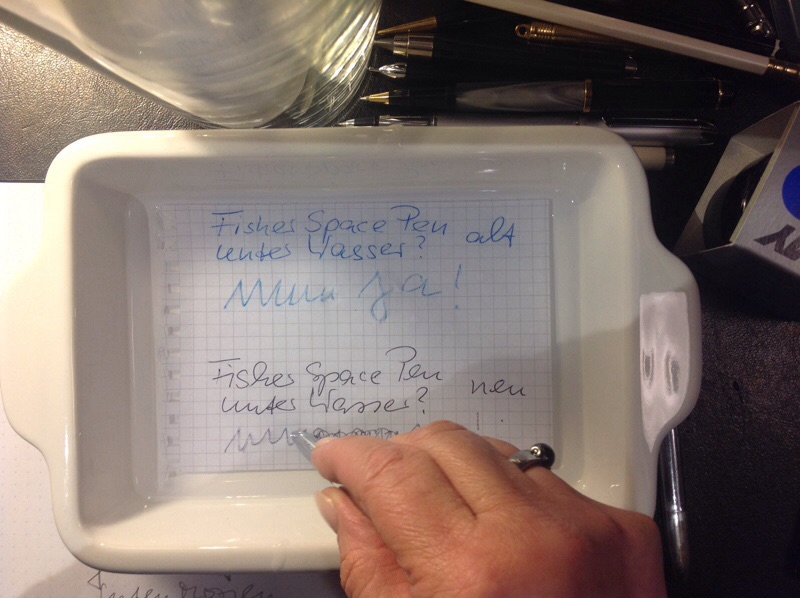 Fisher Space Pen alt
unter Wasser?
Ja!
Fisher Space Pen neu
unter Wasser?